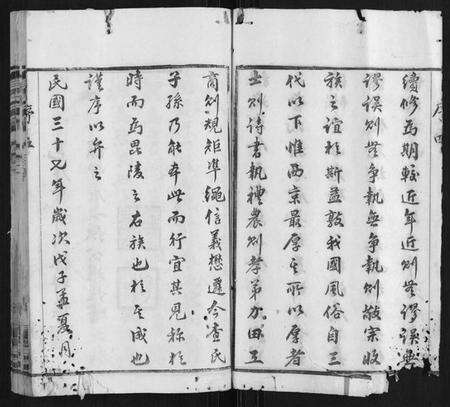 續修為期較近年近則無謬誤無
謬誤則無爭執無爭執則敬宗收
族之誼於斯益敦我國風俗自三
代以下惟西京最厚其所以厚者
士則詩書執禮農則孝弟力田工
商則規矩準繩信義懋遷今查氏
子孫乃能本此而行宜其見稱於
時而為毘陵之右族也於其成也
謹序以弁之
民國三十七年歲次戊子孟夏月
序